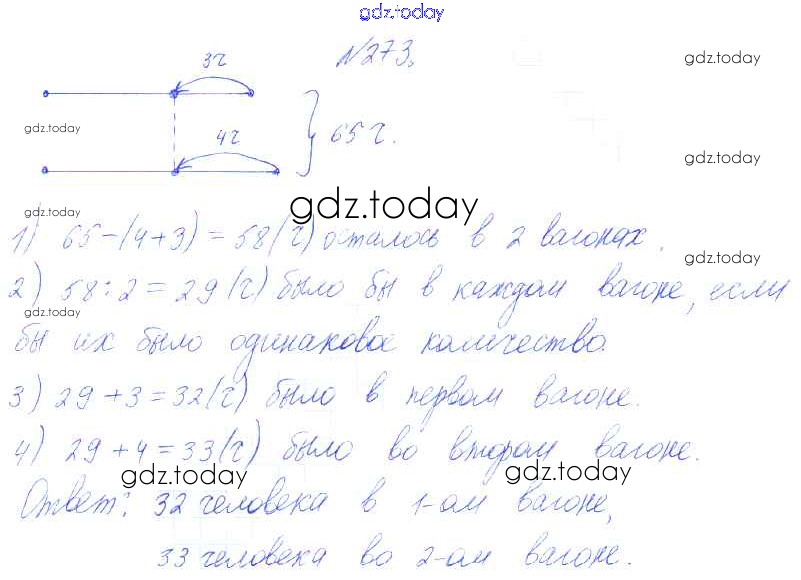 gdz.today
3ч
№273.
gdz.today
gdz.today
4ч
65ч.
gdz.today
gdz.today
gdz.today
1) 65-(4+3)=58(ч) осталось в 2 вагонах.
gdz.today
2) 58:2=29(ч) было бы в каждом вагоне, если
gdz.today
бы их было одинаковое количество.
3) 29+3=32(ч) было в первом вагоне.
4) 29+4=33(ч) было во втором вагоне.
gdz.today gdz.today
Ответ: 32 человека в 1-ом вагоне,
33 человека во 2-ом вагоне.